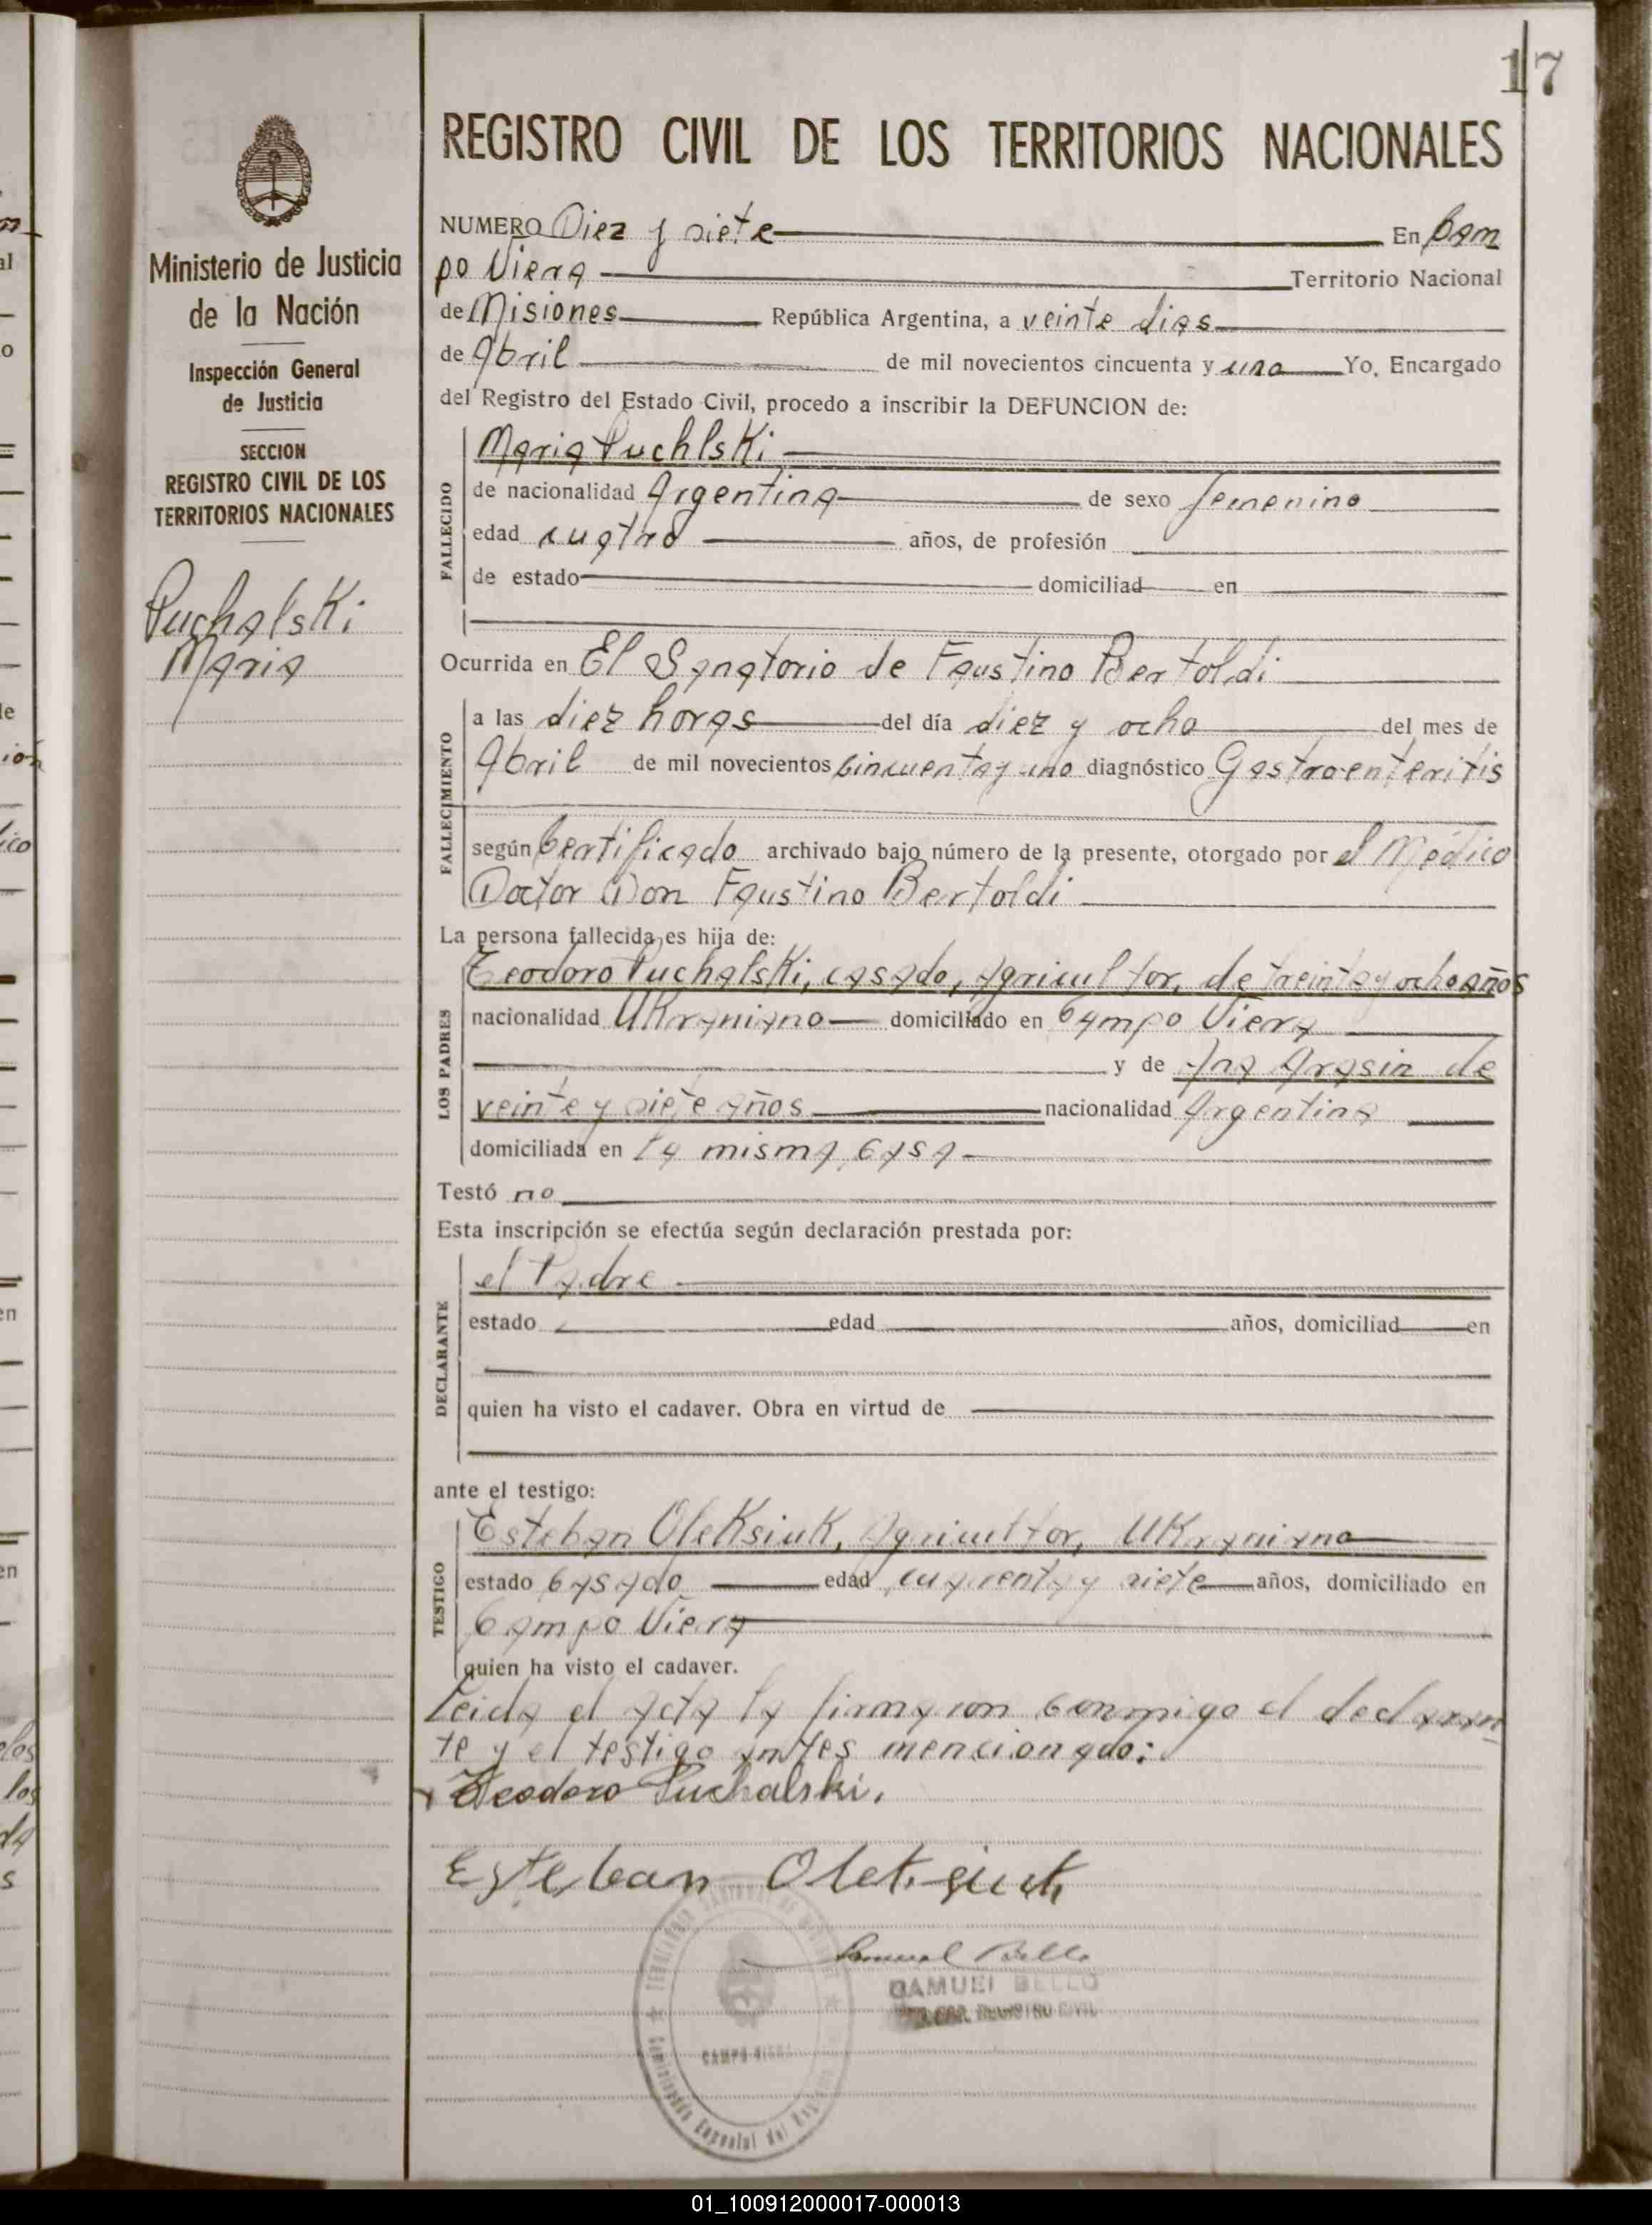 17
REGISTRO CIVIL DE LOS TERRITORIOS NACIONALES
Ministerio de Justicia
de la Nación
Inspección General
de Justicia
SECCION
REGISTRO CIVIL DE LOS
TERRITORIOS NACIONALES
Puchalski
Maria
NUMERO Diez y siete En Cam
po Viera Territorio Nacional
de Misiones República Argentina, a veinte dias
de Abril de mil novecientos cincuenta y uno Yo, Encargado
del Registro del Estado Civil, procedo a inscribir la DEFUNCION de:
FALLECIDO
Maria Puchlski
de nacionalidad Argentina de sexo femenino
edad cuatro años, de profesión
de estado domiciliad en
Ocurrida en El Sanatorio de Faustino Bertoldi
FALLECIMIENTO
a las diez horas del día diez y ocho del mes de
Abril de mil novecientos cincuenta y uno diagnóstico Gastroenteritis
según Certificado archivado bajo número de la presente, otorgado por el Médico
Doctor Don Faustino Bertoldi
La persona fallecida es hija de:
LOS PADRES
Teodoro Puchalski, casado, Agricultor, de treinta y ocho años
nacionalidad Ukraniano domiciliado en Campo Viera
y de Ana Arasin de
veinte y siete años nacionalidad Argentina
domiciliada en la misma casa
Testó no
Esta inscripción se efectúa según declaración prestada por:
DECLARANTE
el Padre
estado edad años, domiciliad en
quien ha visto el cadaver. Obra en virtud de
ante el testigo:
TESTIGO
Esteban Oleksiuk, Agricultor, Ukraniano
estado casado edad cuarenta y siete años, domiciliado en
Campo Viera
quien ha visto el cadaver.
Leida el acta la firmaron conmigo el declaran
te y el testigo antes mencionado:
Teodoro Puchalski.
Esteban Oleksiuk
Samuel Bello
SAMUEL BELLO
REGISTRO CIVIL
CAMPO VIERA
01_100912000017-000013